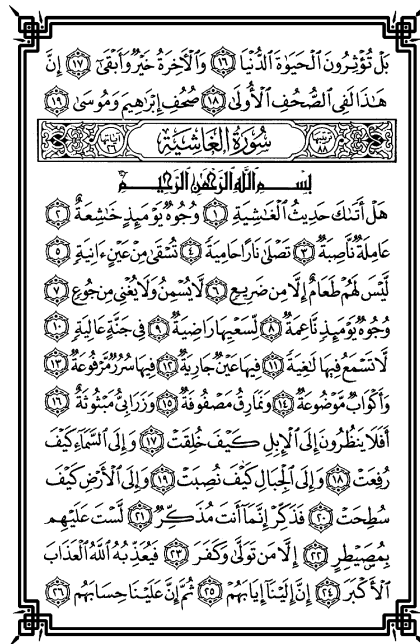 بَلْ تُؤْثِرُونَ الْحَيَوٰةَ الدُّنْيَا ١٦ وَالْءَاخِرَةُ خَيْرٌ وَأَبْقَىٰٓ ١٧ إِنَّ
هَٰذَا لَفِى الصُّحُفِ الْأُولَىٰ ١٨ صُحُفِ إِبْرَٰهِيمَ وَمُوسَىٰ ١٩
سُورَةُ الْغَاشِيَةِ ٨٨
بِسْمِ اللَّهِ الرَّحْمَٰنِ الرَّحِيمِ
هَلْ أَتَىٰكَ حَدِيثُ الْغَٰشِيَةِ ١ وُجُوهٌ يَوْمَئِذٍ خَٰشِعَةٌ ٢
عَامِلَةٌ نَّاصِبَةٌ ٣ تَصْلَىٰ نَارًا حَامِيَةً ٤ تُسْقَىٰ مِنْ عَيْنٍ ءَانِيَةٍ ٥
لَّيْسَ لَهُمْ طَعَامٌ إِلَّا مِن ضَرِيعٍ ٦ لَّا يُسْمِنُ وَلَا يُغْنِى مِن جُوعٍ ٧
وُجُوهٌ يَوْمَئِذٍ نَّاعِمَةٌ ٨ لِّسَعْيِهَا رَاضِيَةٌ ٩ فِى جَنَّةٍ عَالِيَةٍ ١٠
لَّا تَسْمَعُ فِيهَا لَٰغِيَةً ١١ فِيهَا عَيْنٌ جَارِيَةٌ ١٢ فِيهَا سُرُرٌ مَّرْفُوعَةٌ ١٣
وَأَكْوَابٌ مَّوْضُوعَةٌ ١٤ وَنَمَارِقُ مَصْفُوفَةٌ ١٥ وَزَرَابِىُّ مَبْثُوثَةٌ ١٦
أَفَلَا يَنظُرُونَ إِلَى الْإِبِلِ كَيْفَ خُلِقَتْ ١٧ وَإِلَى السَّمَآءِ كَيْفَ
رُفِعَتْ ١٨ وَإِلَى الْجِبَالِ كَيْفَ نُصِبَتْ ١٩ وَإِلَى الْأَرْضِ كَيْفَ
سُطِحَتْ ٢٠ فَذَكِّرْ إِنَّمَآ أَنتَ مُذَكِّرٌ ٢١ لَّسْتَ عَلَيْهِم
بِمُصَيْطِرٍ ٢٢ إِلَّا مَن تَوَلَّىٰ وَكَفَرَ ٢٣ فَيُعَذِّبُهُ اللَّهُ الْعَذَابَ
الْأَكْبَرَ ٢٤ إِنَّ إِلَيْنَآ إِيَابَهُمْ ٢٥ ثُمَّ إِنَّ عَلَيْنَا حِسَابَهُم ٢٦